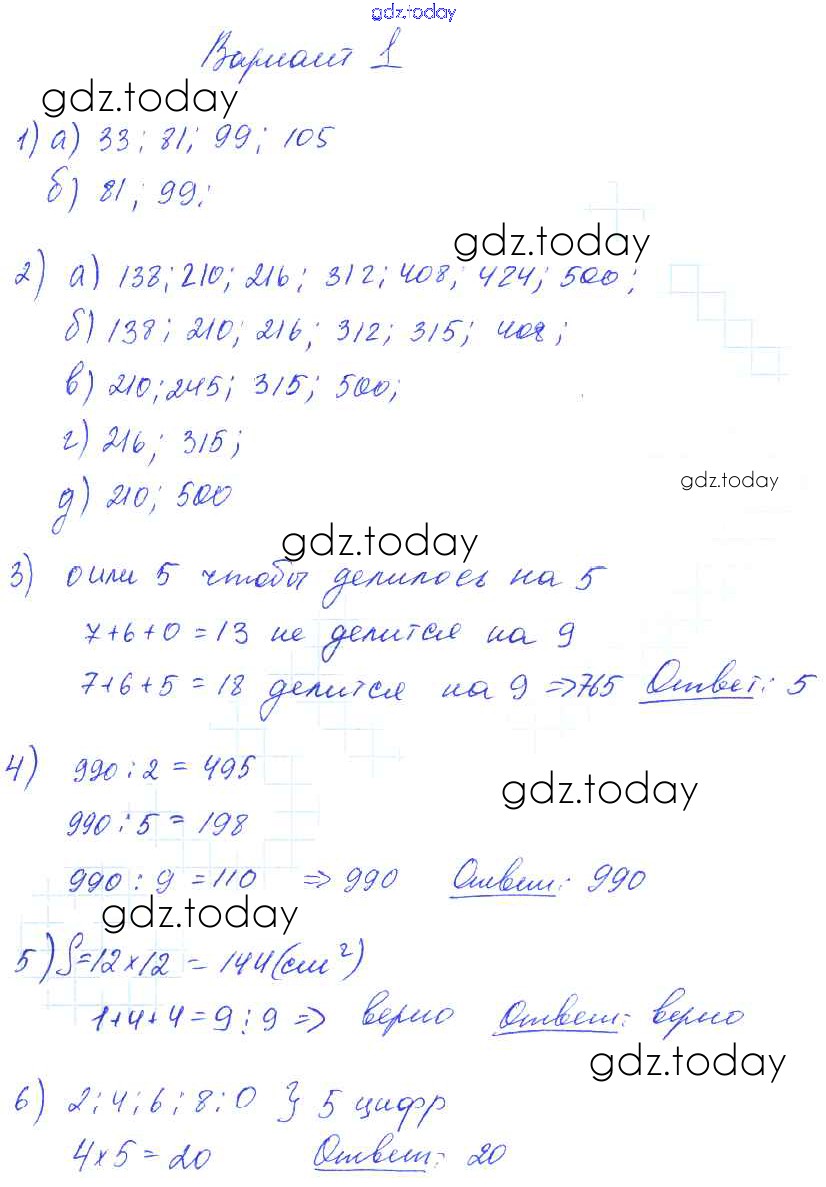 gdz.today
Вариант 1
gdz.today
1) а) 33; 81; 99; 105
б) 81; 99;
gdz.today
2) а) 138; 210; 216; 312; 408; 424; 500;
б) 138; 210; 216; 312; 315; 408;
в) 210; 245; 315; 500;
г) 216; 315;
gdz.today
д) 210; 500
gdz.today
3) 0 или 5 чтобы делилось на 5
7+6+0=13 не делится на 9
7+6+5=18 делится на 9 => 765 Ответ: 5
4) 990:2=495
gdz.today
990:5=198
990:9=110 => 990 Ответ: 990
gdz.today
5) S=12×12=144(см²)
1+4+4=9:9 => верно Ответ: верно
gdz.today
6) 2; 4; 6; 8; 0 } 5 цифр
4×5=20 Ответ: 20